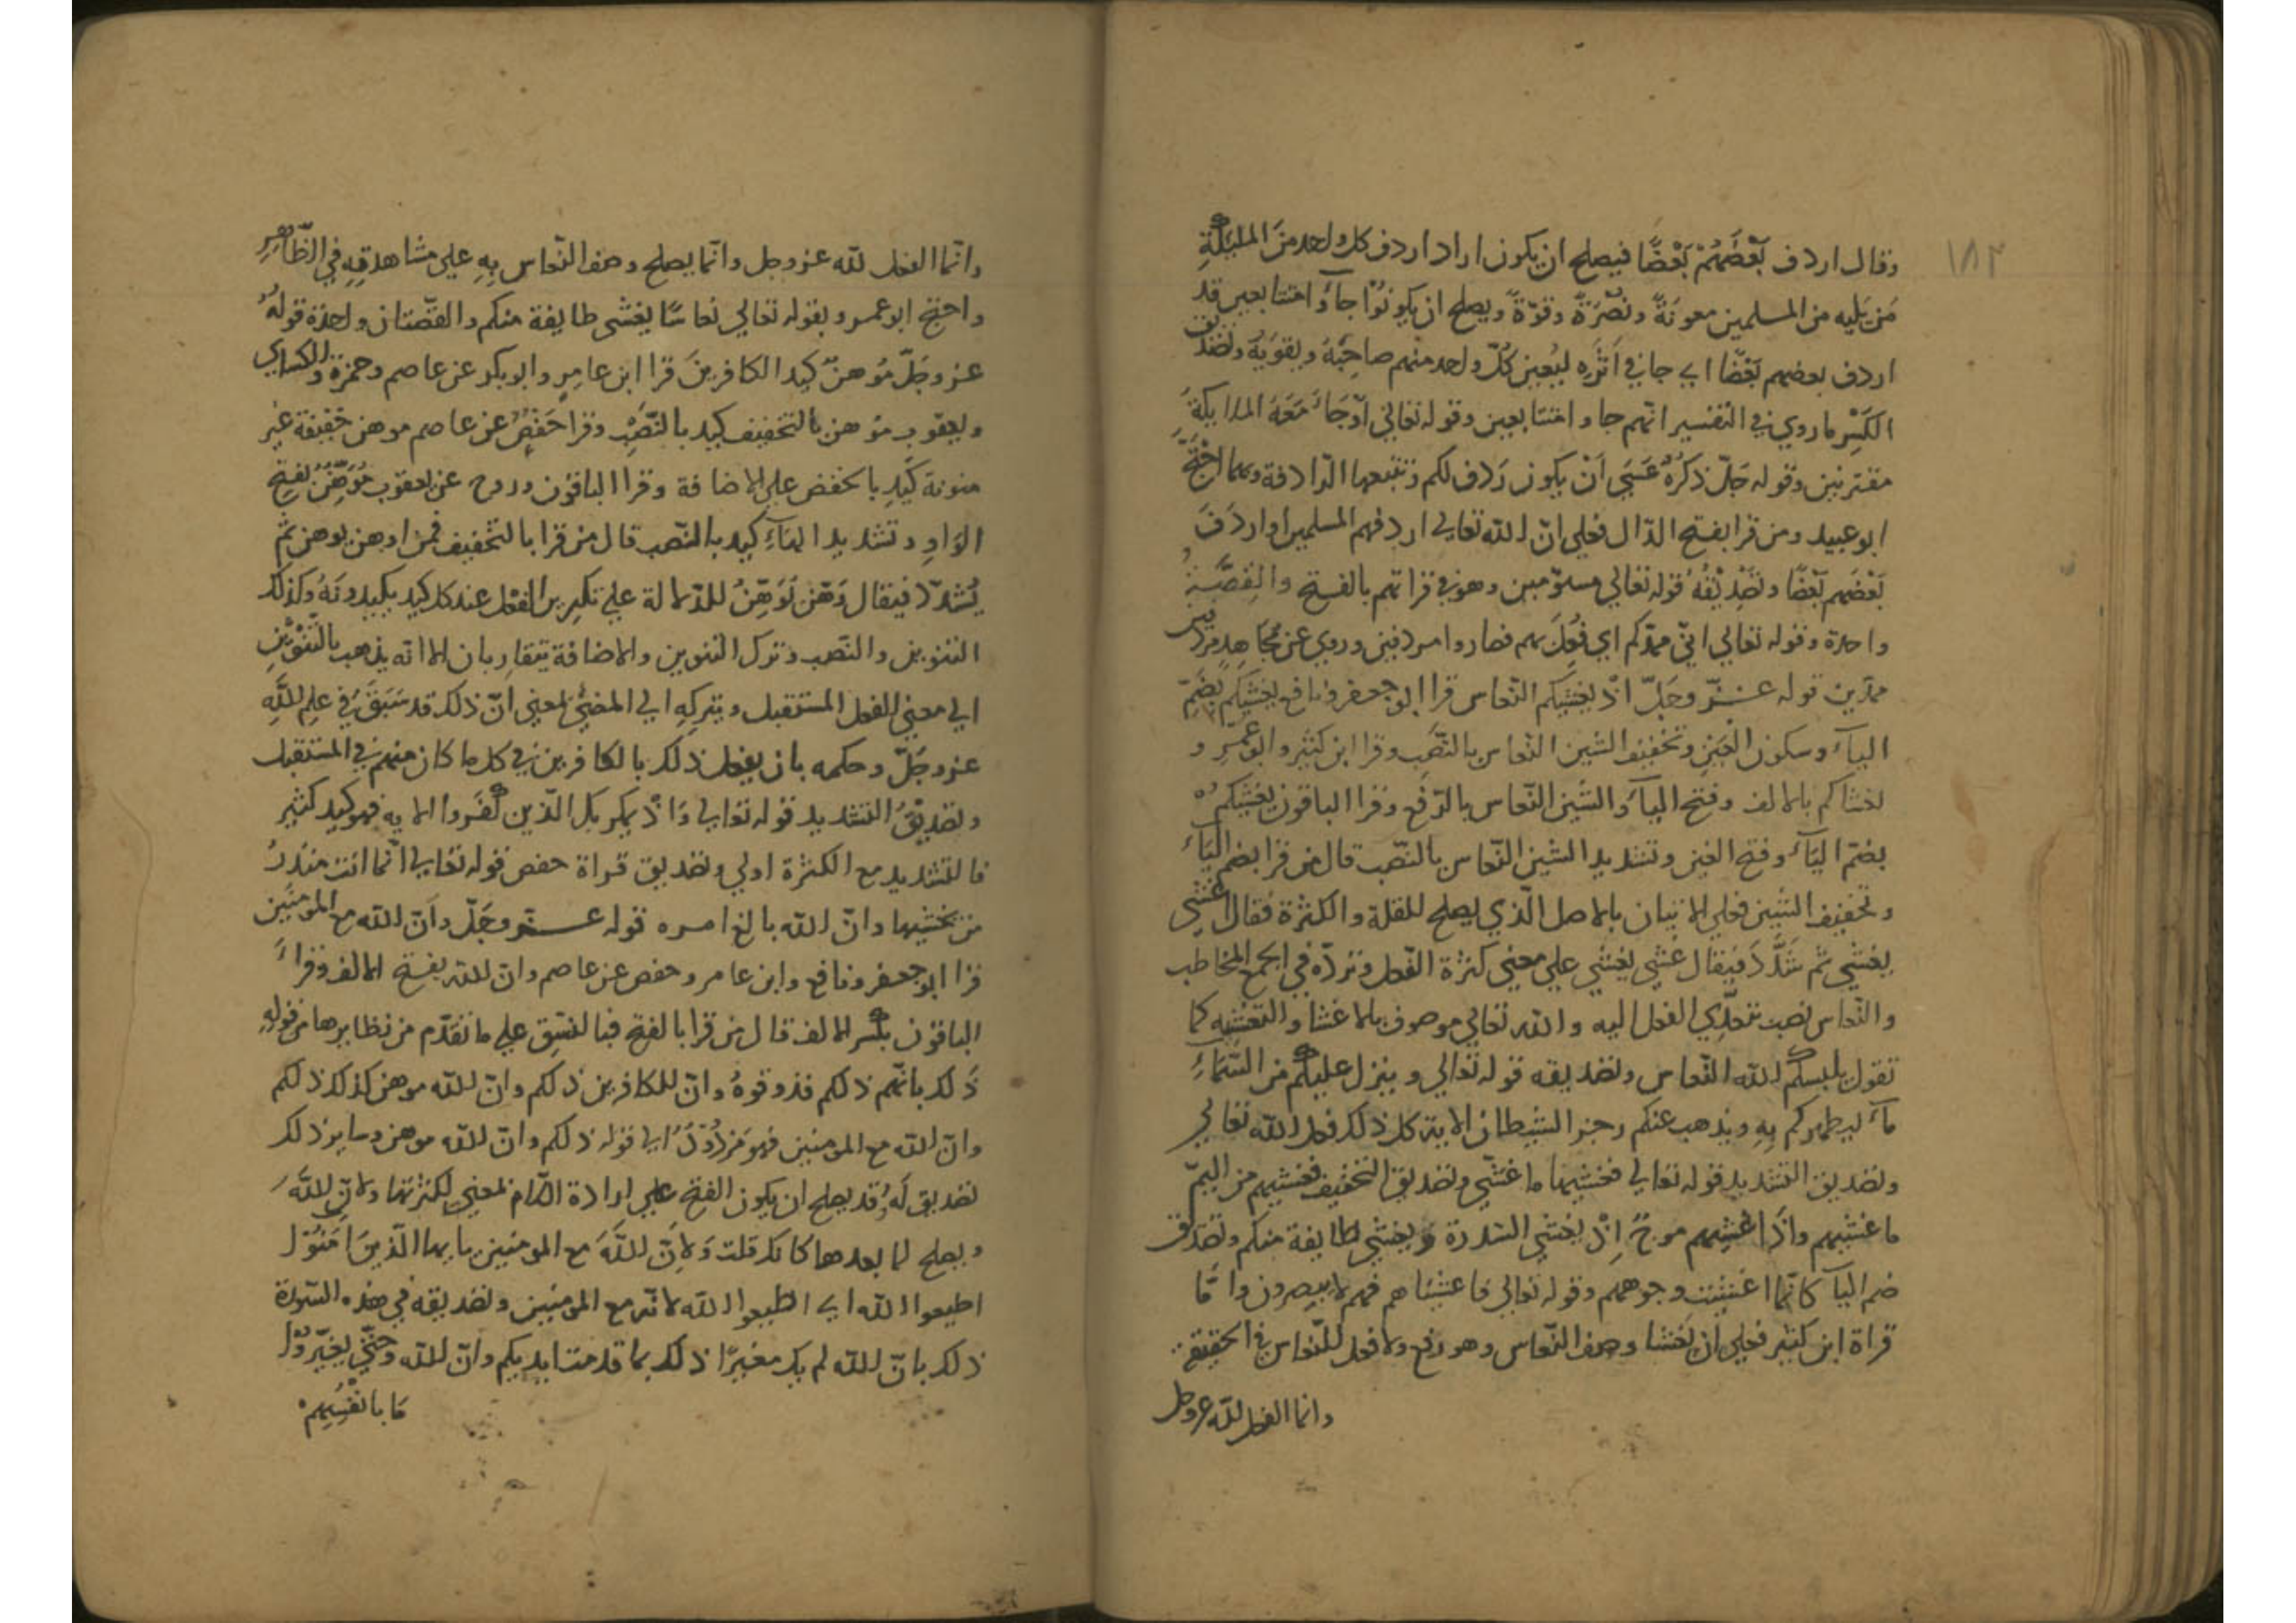 ١٨٢
وقال اردف بَعْضُهُمْ بَعْضًا فيصلح ان يكون اراد اردف كل واحد منَ الملئكَةِ
مَن يَليه من المسلمين معونَةً ونُصْرَةً وقوّةً ويصلح ان يكونُوْا جاَؤا متتابعين قد
اردف بعضهم بَعْضًا اي جا في اَثرِه ليُعين كُلّ واحد منهم صاحِبَهُ ويقوّيَهُ وتصديق
الكَسْر ما روي في التفسير انهم جاوا متتابعين وقوله تعالي اوْجَاَءَ مَعَهُ الملايكَةُ
مقترنين وقوله جَلّ ذكرُهُ عَسَي اَنْ يكون رَدِف لكم وتتبعها الرّادفة وبهما احْتَجّ
ابو عبيد ومن قرا بفتح الدّال فعلي انّ الله تعالي اردفهم المسلمين او اردَفَ
بَعْضَهم بَعْضًا وتصْدِيْقُهُ قوله تعالي مسوّمين وهو في قراتهم بالفتح والقِصَّةُ
واحدة وقوله تعالي انّي ممدّكم اي فُعِلَ بهم فصاروا مردفين وروي عن مُجَاهدٍ مردفين
ممدّين قوله عــزّ وجَلّ اذْ يغشيكم النّعاس قرا ابو جعفر ونافع يغشيكم بضَمّ
الياَء وسكون الغَين وتخفيف الشين النّعاس بالنّصَب وقرا ابن كثير وابو عَمْرٍو
يغشاكم بالالف وفتح الياَء والشين النّعاس بالرّفع وقرا الباقون يغشيكم
بضمّ الياَء وفتح الغين وتشديد الشين النّعاس بالنّصب قال من قرا بضم الياَء
وتخفيف الشين فعلي الاتيان بالاصل الّذي يصلح للقلة والكثرة فقال اغشي
يغشي ثم شَدَّدَ فيقال غشّي يغشّي علي معني كثرة الفعل وتردّه في الجمع المخاطب
والنّعاس نصب بتعدّي الفعل اليه والله تعالي موصوف بالاغشا والتغشيه كما
تقول يلبسكم الله النّعاس وتصديقه قوله تعالي وينزل عليكم من السّماَءِ
ماَء ليطهركم بِهِ ويذهب عنكم رجز الشيطان الاية كل ذلك فعل الله تعالي
وتصديق التشديد قوله تعالي فغشيها ما غشّي وتصديق التخفيف فغشيهم من اليمّ
ما غشيهم واذَا غشيهم موج اِذْ يغشي السّدرة ويغشي طايفة منكم وتصديق
ضم الياَ كانّما اغشيت وجوههم وقوله تعالي فاغشيناهم فهم لا يبصرون وامّا
قراة ابن كثير فعلي ان يَغشا وصف النّعاس وهو رفع ولا فعل للنّعاس في الحقيقة
وانما الفعل لله عز وجل
وانّما الفعل لله عز وجل وانّما يصلح وصف النّعاس بِهِ علي مشاهدتِهِ في الظّاهِرِ
واحتج ابو عمرو بقوله تعالي نعاسًا يغشي طايفة منكم والقصّتان واحدة قولُهُ
عز وجَلّ مُوهنٌ كيدَ الكافرينَ قرا ابن عامرٍ وابو بكر عن عاصم وحمزة والكساي
ويعقوب موهن بالتخفيف كيد بالنّصْب وقرا حَفْصٌ عن عاصم موهن خفيفة غير
منونة كيدِ بالخفض علي الاضافة وقرا الباقون وروح عن يعقوب مُوَهِّنٌ بفتح
الوَاوِ وتشديد الهاَءِ كيد بالنّصب قال من قرا بالتّخفيف فمن اوهن يوهن ثمّ
يُشدّد فيقال وَهّنَ يُوَهِّنُ للدّلالة علي تكرير الفعل عند كل كيد يكيدونَهُ وكذلك
التنوين والنّصب وترك التنوين والاضافة يتقاربان الا انّه يذهب بالتّنْوِيْنِ
الي معني الفعل المستقبل وبتركِهِ الي المضيّ لمعني انّ ذلك قد سَبَقَ في علِم اللّهِ
عز وجَلّ وحكمه بان يفعل ذلك بالكافرين في كل ما كان منهم في المستقبل
وتصديقُ التشديد قوله تعالي وَاذْ يمكر بك الّذين كفَروا الايه فهو كيد كثير
فالتشديد مع الكثرة اولي وتصديق قراة حفص قوله تعالي انّما انت منذرُ
من يخشيها وانّ الله بالغ امره قوله عــزّ وجَلّ واَنّ الله مع المومنين
قرا ابو جعفر ونافع وابن عامر وحفص عن عاصم وانّ اللّه بفتح الالف وقرأ
الباقون بكسر الالف قال من قرا بالفتح فبالنسق علي ما تقدّم من نظايرها من قولِهِ
ذَلك بانّهم ذلكم فذوقوهُ وانّ للكافرين ذلكم وانّ الله موهن كذلك ذلكم
وانّ الله مع المومنين فهو مَرْدُوْدٌ الي قوله ذلكم وانّ اللّه موهن وساير ذلك
تصديق لَهُ وقد يصلح ان يكون الفتح علي ارادة اللّام لمعني لكثرتها ولانّ اللّهَ
ويصلح لما بعدها كانك قلت وَلاِنّ اللّهَ مع المومنين يايها الّذينَ اٰمَنُوْا
اطيعوا الله اي اطيعوا الله لانّه مع المومنين وتصديقه في هذه السّورة
ذلك بانّ اللّه لم يك مغيرًا ذلك بما قدمت ايديكم وانّ اللّه وحتّي يغيّروْا
مَا بانفُسِهِمْ